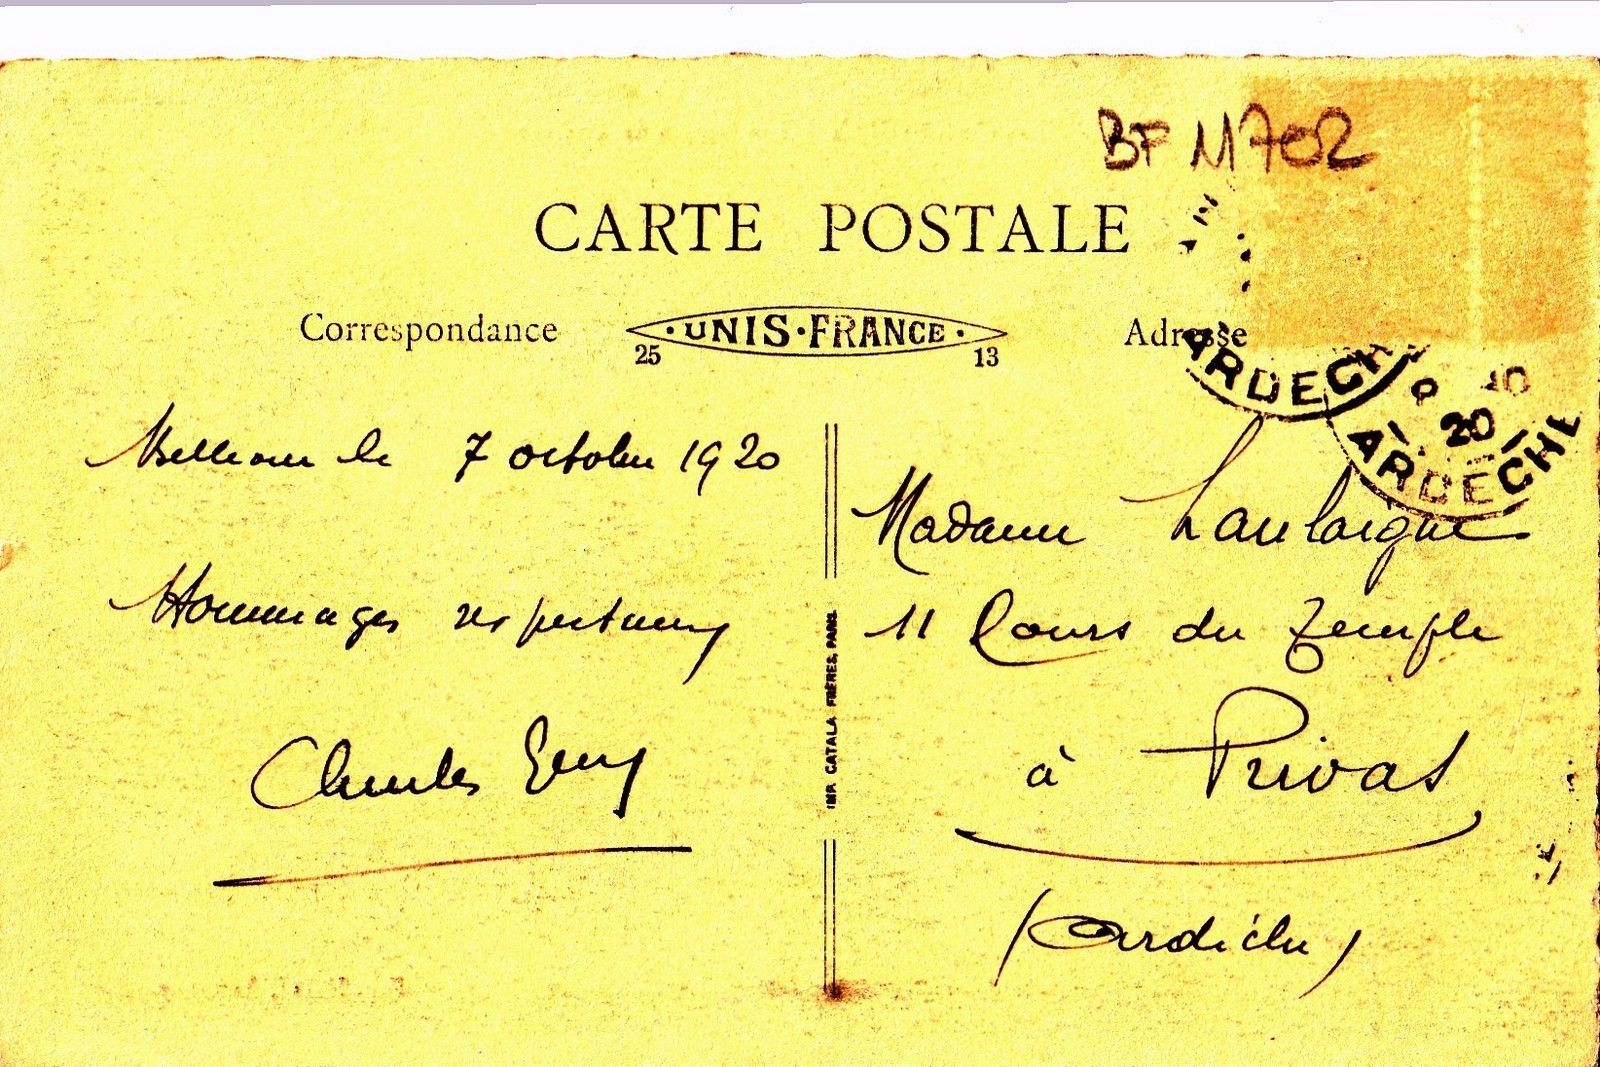 BF M702
CARTE POSTALE
Correspondance
UNIS·FRANCE
25 13
Adresse
ARDECHE
20
ARDECHE
le 7 octobre 1920
Hommages respectueux
Charles
IMP. CATALA FRÈRES, PARIS.
Madame
11 Cours du Temple
à Privas
(Ardèche)